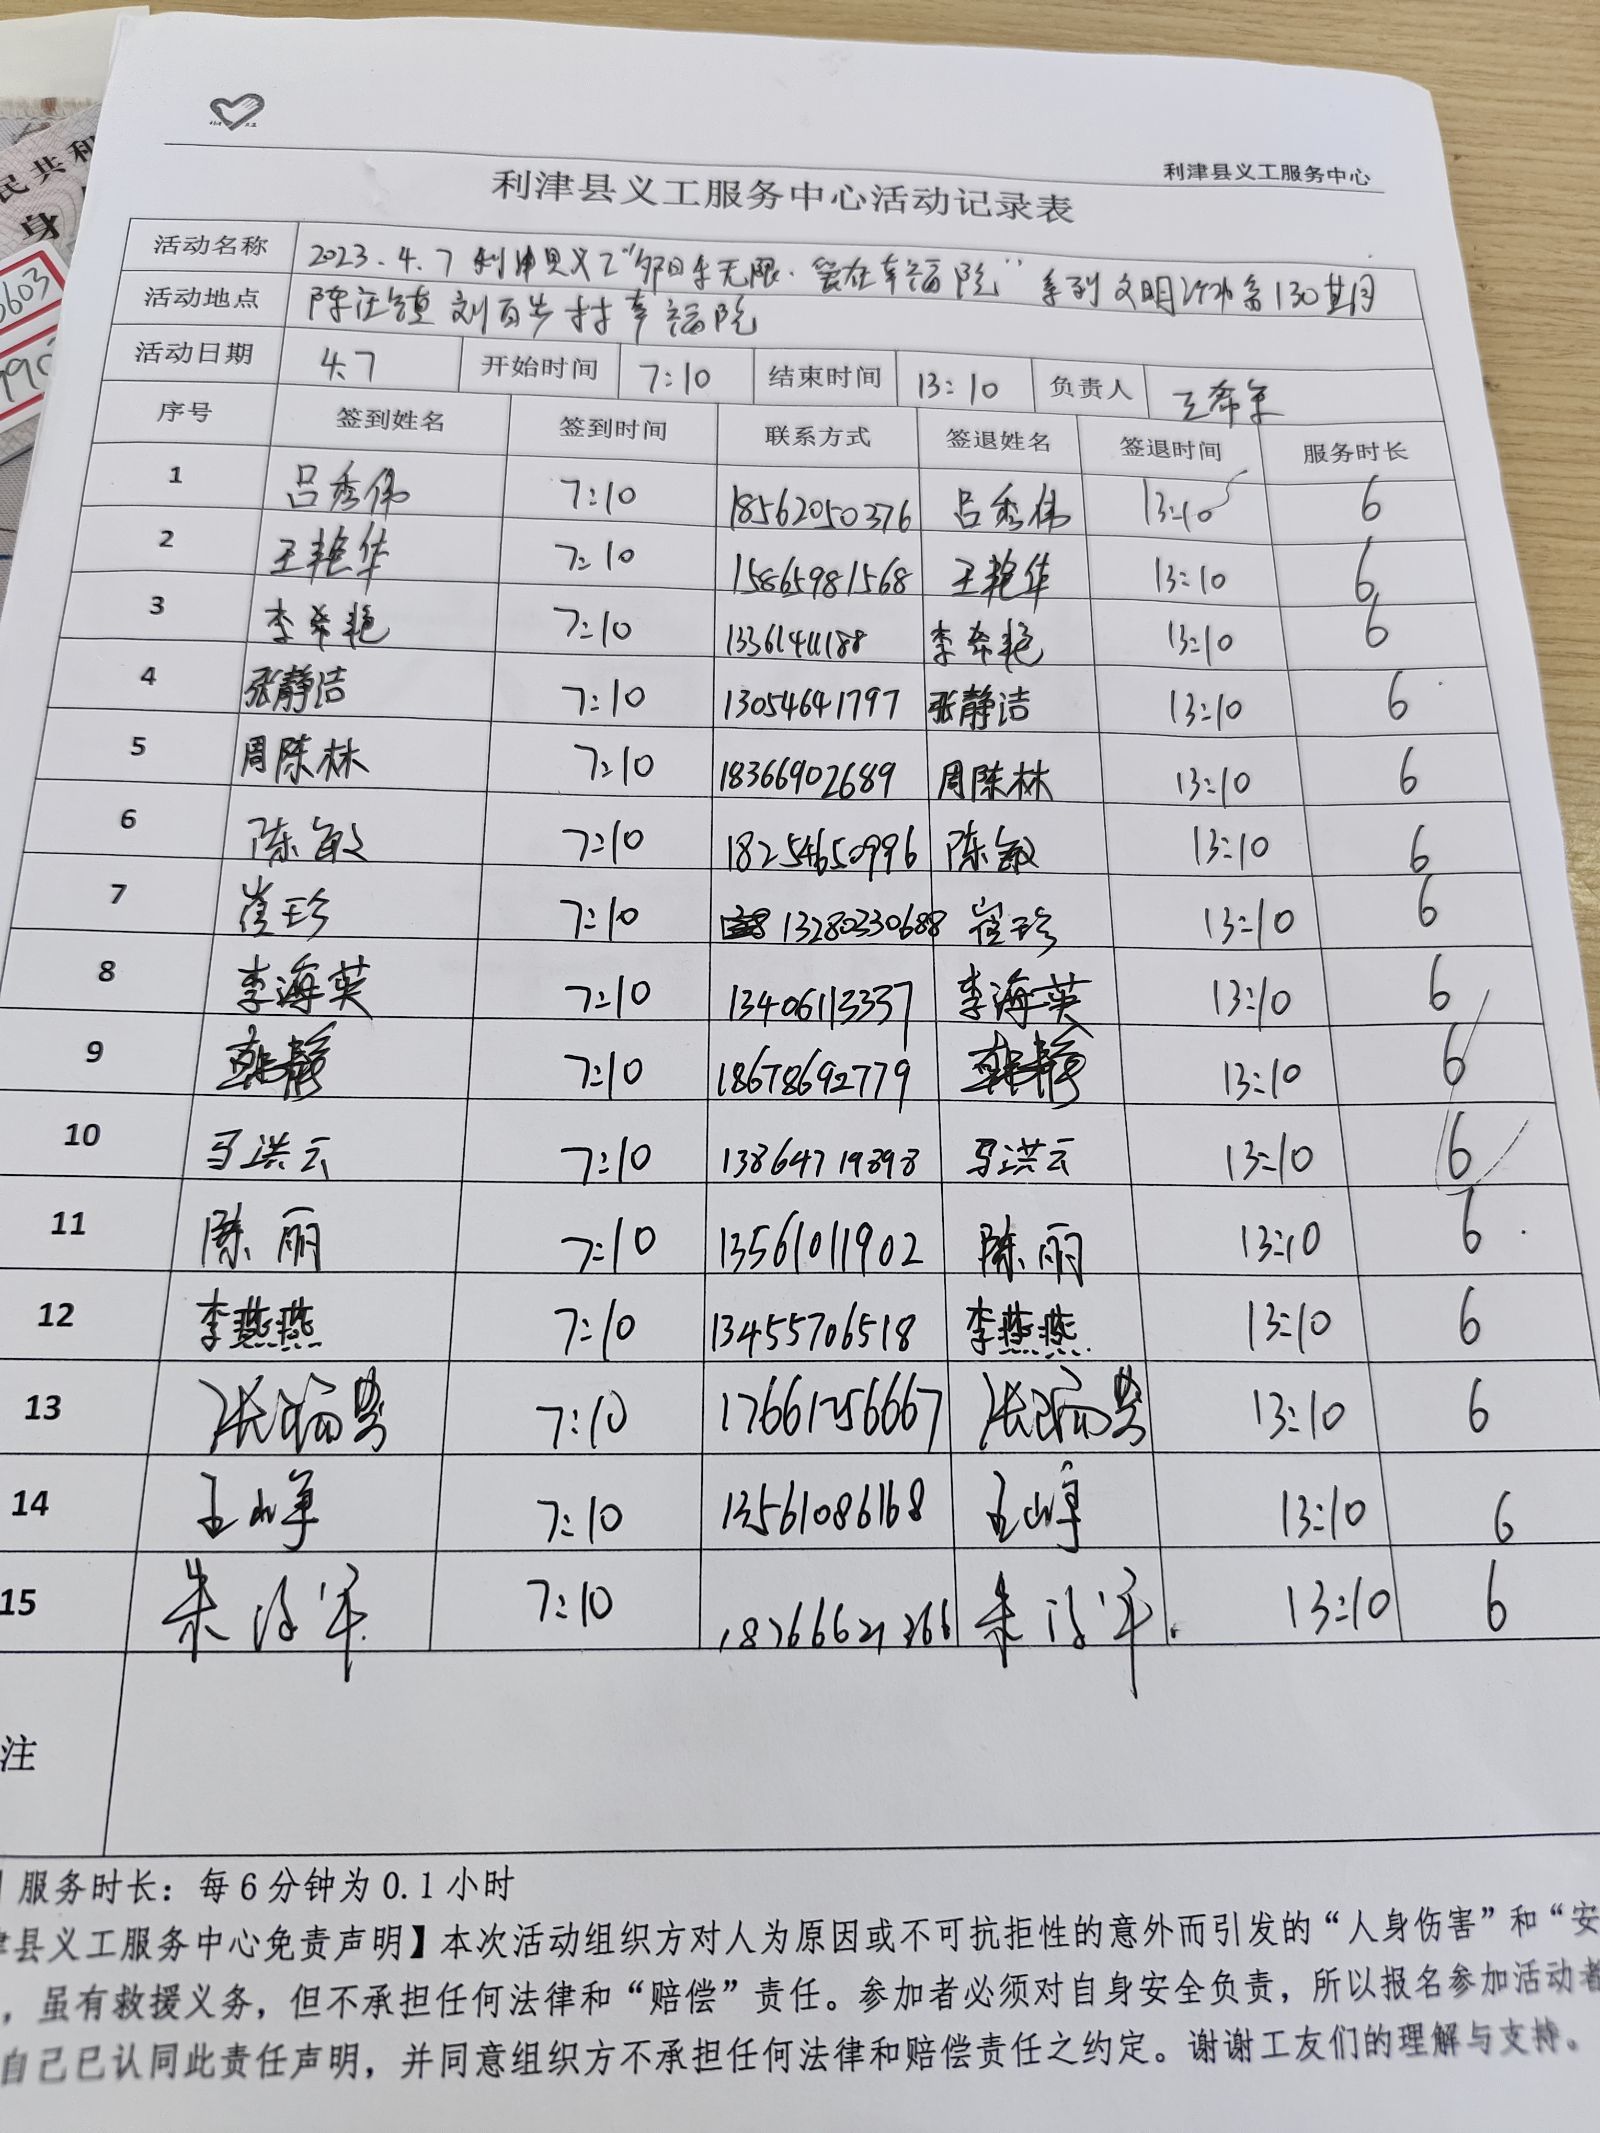 利津县义工服务中心
利津县义工服务中心活动记录表
活动名称 2023.4.7 利津县义工"夕阳乐无限·爱在幸福院"系列文明实践第130期
活动地点 陈庄镇刘百步村幸福院
活动日期 4.7 开始时间 7:10 结束时间 13:10 负责人 王希军
序号 签到姓名 签到时间 联系方式 签退姓名 签退时间 服务时长
1 吕秀伟 7:10 18562050376 吕秀伟 13:10 6
2 王艳华 7:10 15865981568 王艳华 13:10 6
3 李希艳 7:10 13361411188 李希艳 13:10 6
4 张静洁 7:10 13054641797 张静洁 13:10 6
5 周陈林 7:10 18366902689 周陈林 13:10 6
6 陈敏 7:10 18254650996 陈敏 13:10 6
7 崔珍 7:10 13280330688 崔珍 13:10 6
8 李海英 7:10 13406113337 李海英 13:10 6
9 韩静 7:10 18678692779 韩静 13:10 6
10 马洪云 7:10 13864719898 马洪云 13:10 6
11 陈丽 7:10 13561011902 陈丽 13:10 6
12 李燕燕 7:10 13455706518 李燕燕 13:10 6
13 7:10 17661256667 13:10 6
14 7:10 13561086168 13:10 6
15 7:10 13:10 6
注
服务时长：每6分钟为0.1小时
津县义工服务中心免责声明】本次活动组织方对人为原因或不可抗拒性的意外而引发的“人身伤害”和“安
，虽有救援义务，但不承担任何法律和“赔偿”责任。参加者必须对自身安全负责，所以报名参加活动者
自己已认同此责任声明，并同意组织方不承担任何法律和赔偿责任之约定。谢谢工友们的理解与支持。